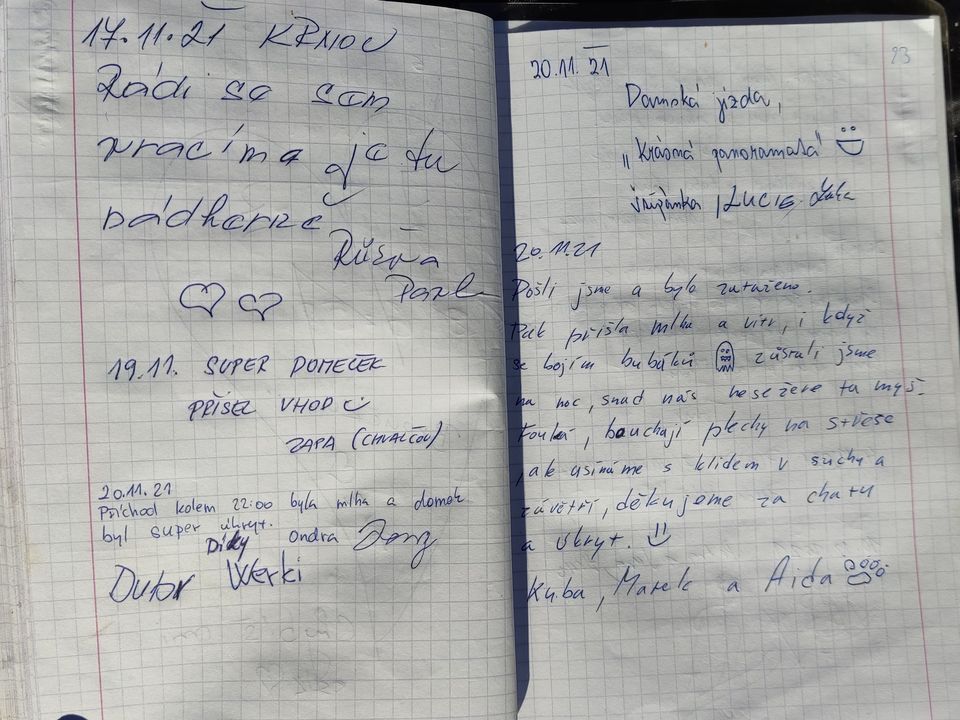 17.11.21 KRNOV
Rádi se sem
vracíme je tu
nádherně
Růžena
19.11. SUPER DOMEČEK
PŘIŠEL VHOD
ZAPA (CHVALČOV)
20.11.21
Příchod kolem 22:00 byla mlha a domek
byl super úkryt.
Díky Ondra
Werki
93
20.11.21
Damská jízda,
„Krásná panoramata"
Štěpánka, LUCIE
20.11.21
Došli jsme a bylo zataženo.
Pak přišla mlha a vítr, i když
se bojím bubáků zůstali jsme
na noc, snad nás nesežere ta myš.
Fouká, bouchají plechy na střeše
, ale usínáme s klidem v suchu a
závětří, děkujeme za chatu
a úkryt.
Kuba, Marek a Aida